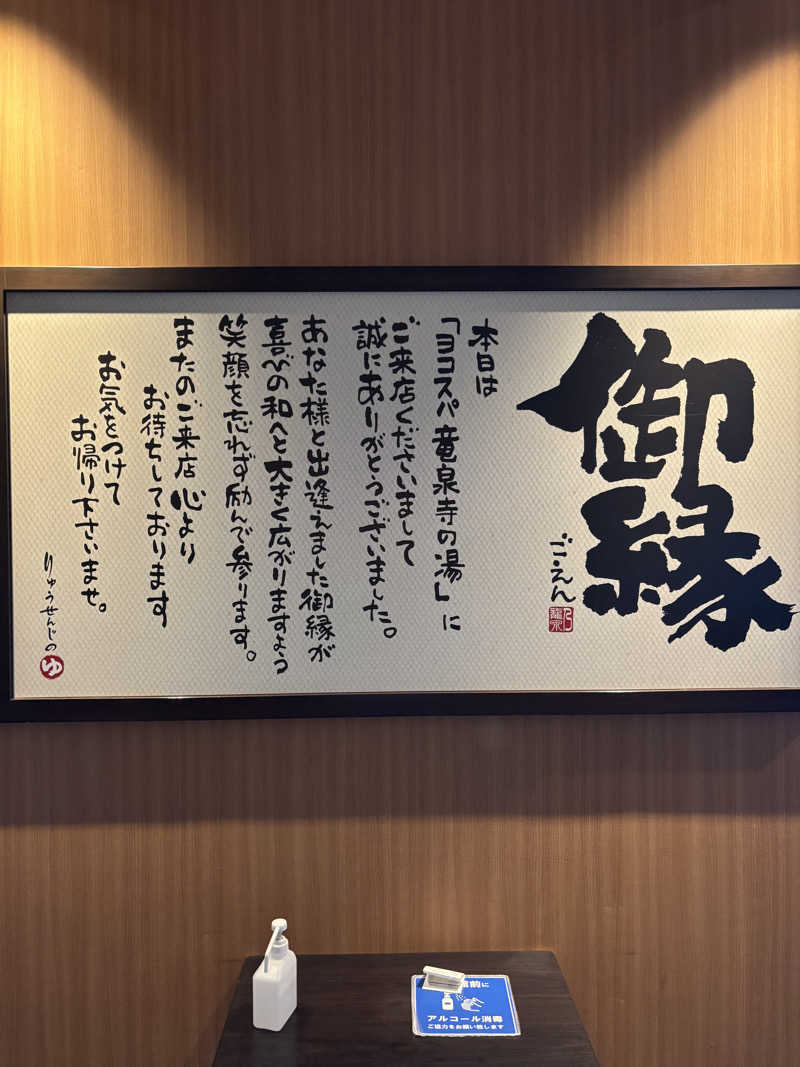 御縁
ごえん
本日は
「ヨコスパ竜泉寺の湯」に
ご来店くださいまして
誠にありがとうございました。
あなた様と出逢えました御縁が
喜びの和へと大きく広がりますよう
笑顔を忘れず励んで参ります。
またのご来店 心より
お待ちしております
お気をつけて
お帰り下さいませ。
りゅうせんじの
ゆ
前に
アルコール消毒
ご協力をお願い致します